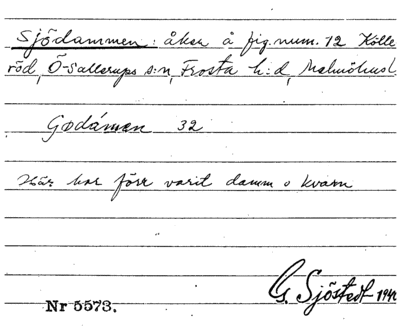 Sjödammen: åker å fig.num. 12 Kölle
röd, Ö-Sallerups s:n, Frosta h:d, Malmöhusl.
Godámen 32
Här har förr varit damm o kvarn
G. Sjöstedt 194
Nr 5573.